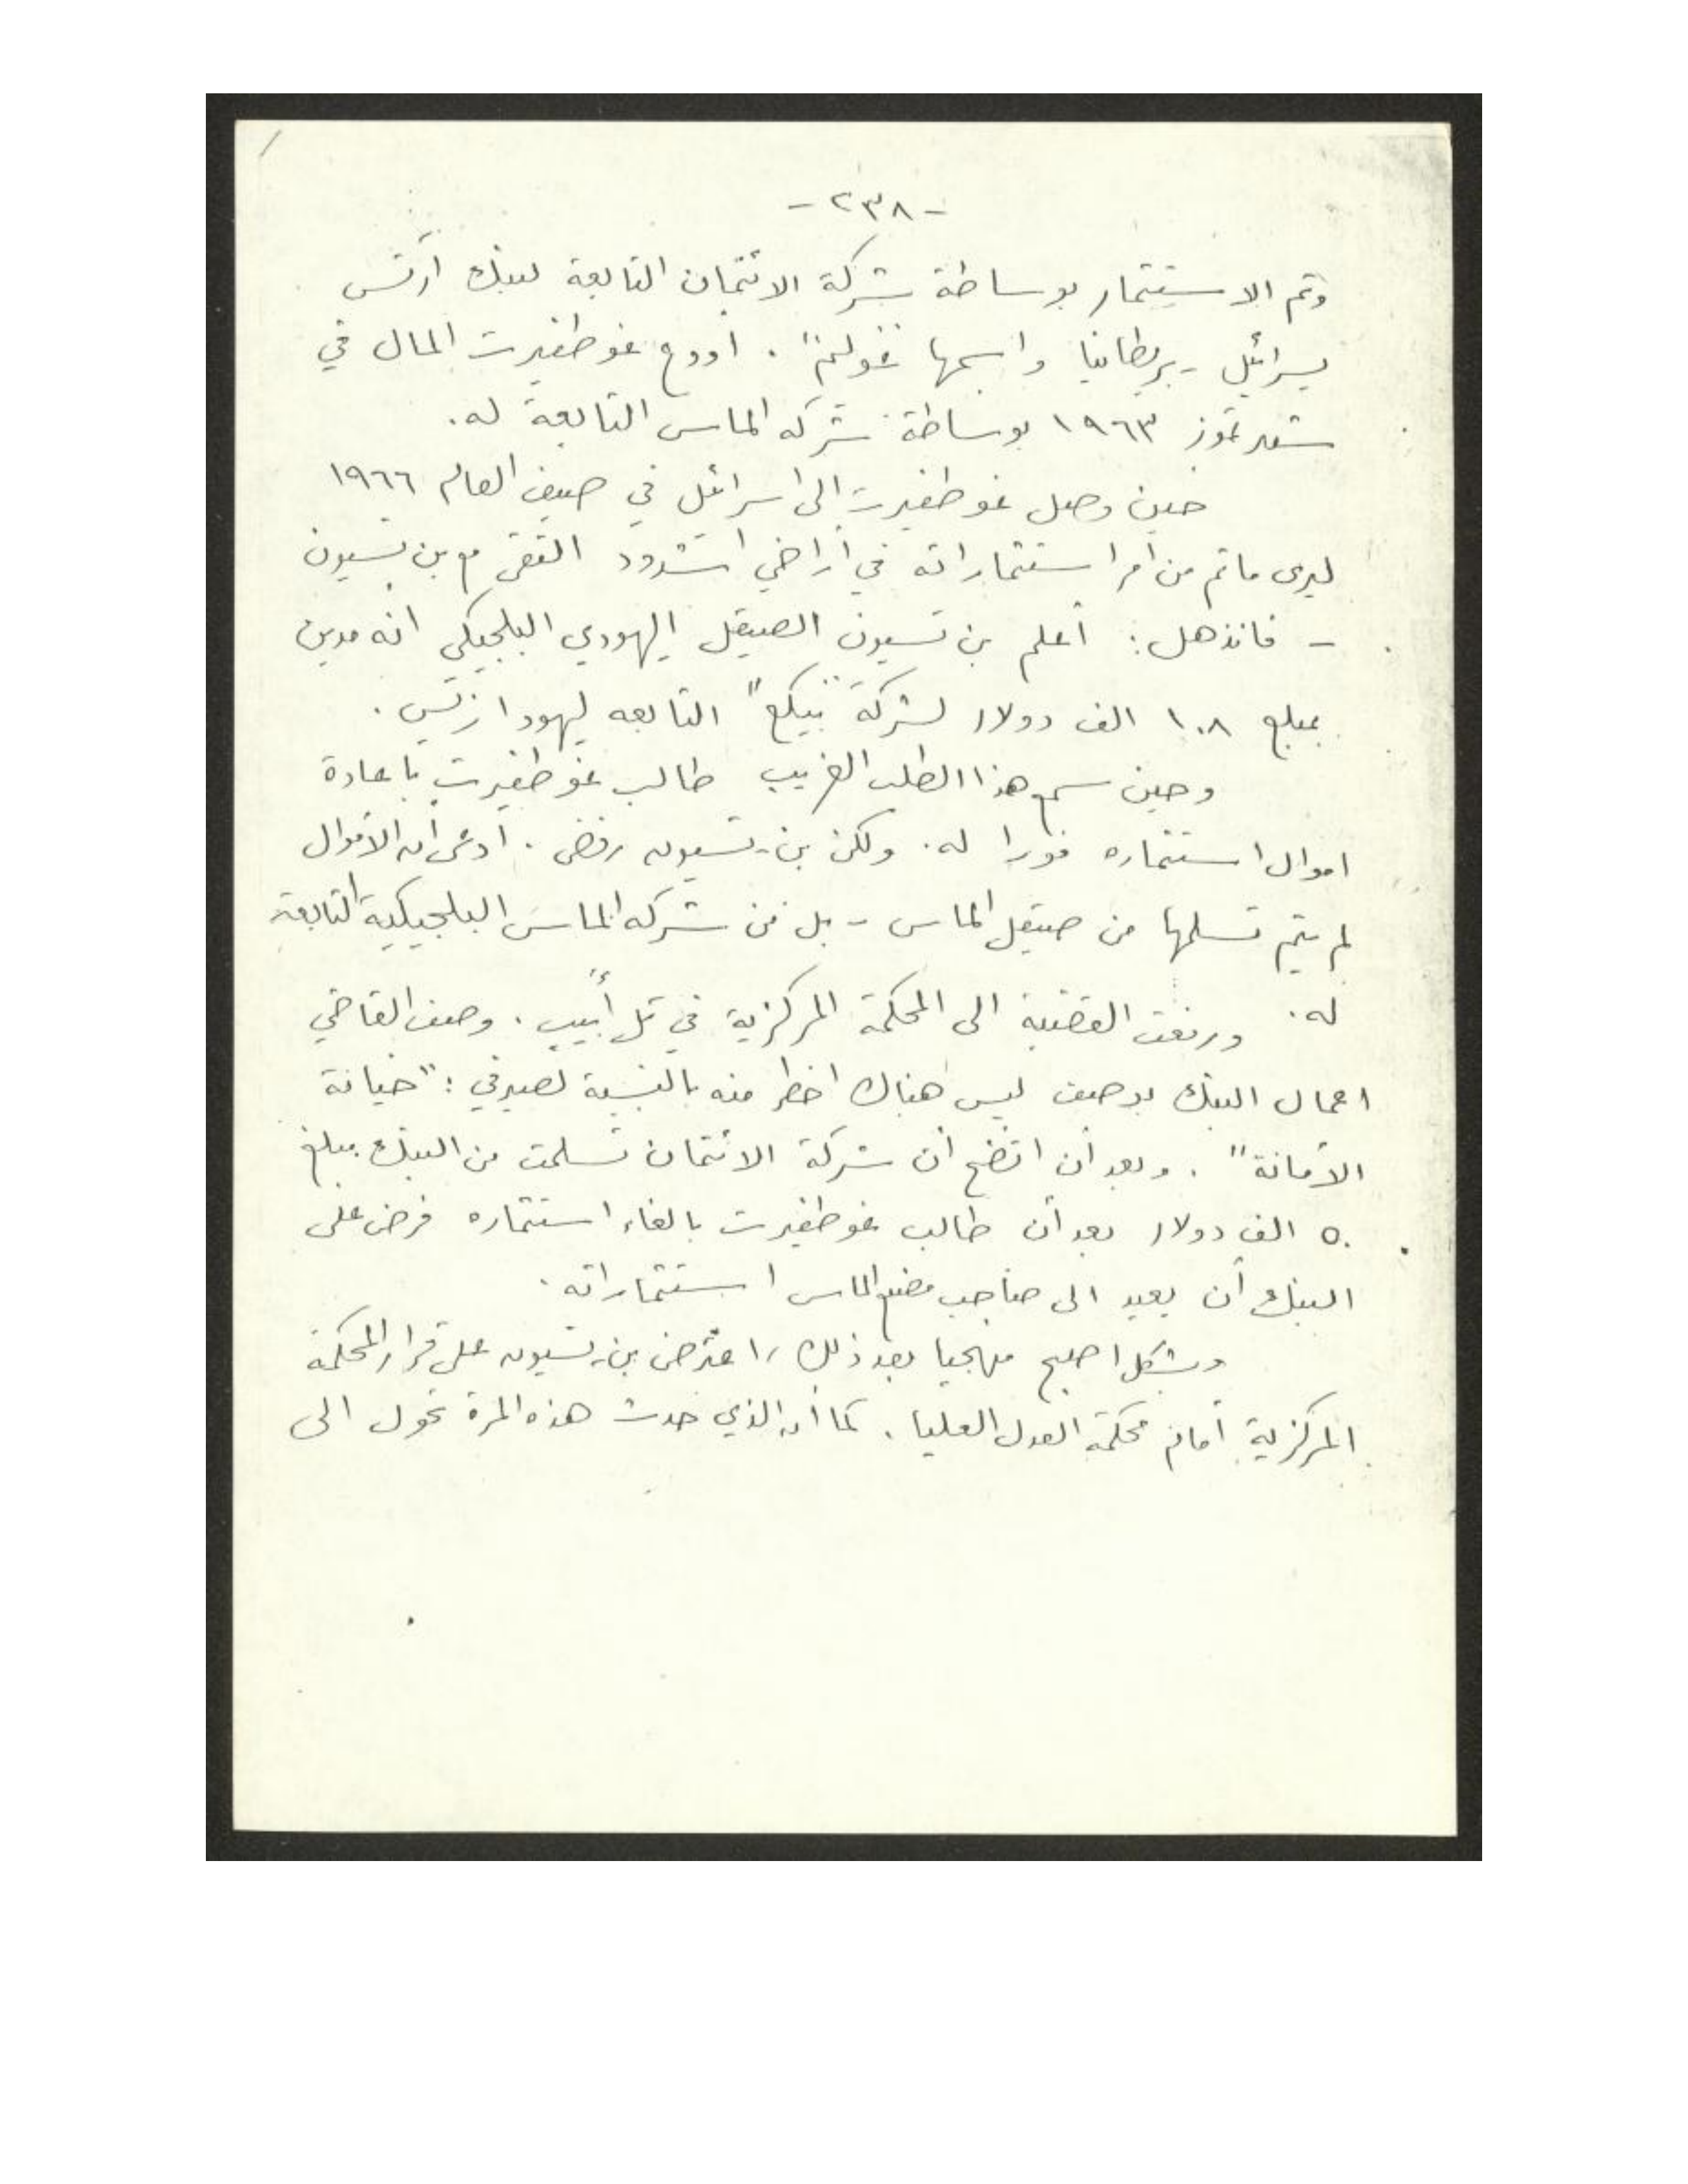 - ٢٣٨ -
وتم الاستثمار بوساطة شركة الائتمان التابعة لبنك آرتس
يسرائيل - بريطانيا واسمها "غوليم". اودع غوطفيرت المال في
شهر تموز ١٩٦٣ بوساطة شركة الماس التابعة له.
حين وصل غوطفيرت الى اسرائيل في صيف العام ١٩٦٦
ليرى ماتم من أمر استثماراته في أراضي اشدود التقى مع بن تسيون
- فانذهل: أعلم بن تسيون الصيقل اليهودي البلجيكي انه مدين
بمبلغ ١٠٨ الف دولار لشركة "بيكع" التابعه ليهودا ارتس.
وحين سمع هذا الطلب الغريب طالب غوطفيرت باعادة
اموال استثماره فورا له. ولكن بن-تسيون رفض. ادعى أن الأموال
لم يتم تسلمها من صيقل الماس - بل من شركة الماس البلجيكية التابعة
له. ورفعت القضية الى المحكمة المركزية في تل أبيب. وصف القاضي
اعمال البنك بوصف ليس هناك اخطر منه بالنسبة لصيرفي: "خيانة
الأمانة". وبعد ان اتضح أن شركة الائتمان تسلمت من البنك مبلغ
٥٠ الف دولار بعد أن طالب غوطفيرت بالغاء استثماره فرض على
البنك أن يعيد الى صاحب مصنع الماس استثماراته.
وبشكل اصبح منهجيا بعد ذلك، اعترض بن-تسيون على قرار المحكمة
المركزية أمام محكمة العدل العليا. كما أن الذي حدث هذه المرة تحول الى